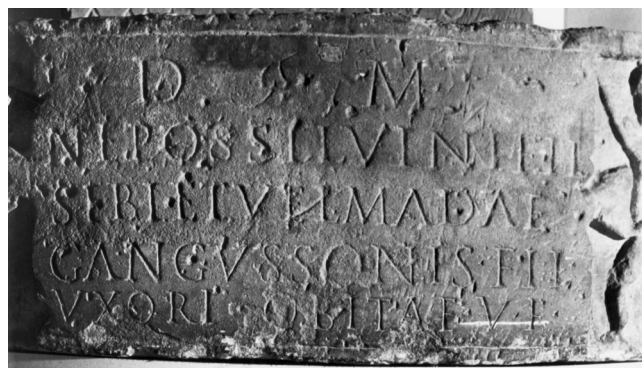 D M
NIPOS SILVINI FIL
SIBI ET VELMADAE
GANGVSSONIS·FIL
VXORI OBITAE·V·F